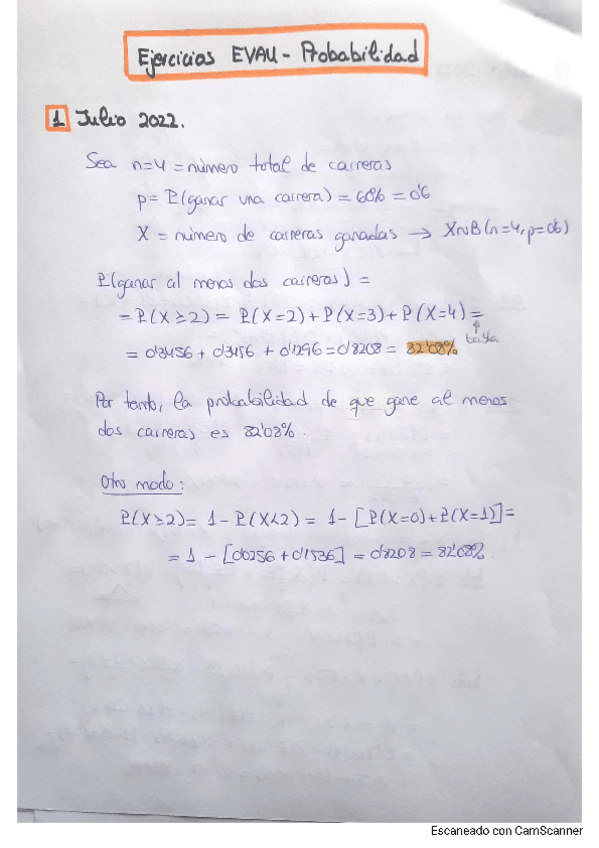 Ejercicios EVAU - Probabilidad
1 Julio 2022.
Sea n=4 = número total de carreras
p = P(ganar una carrera) = 60% = 0'6
X = número de carreras ganadas → X~B(n=4, p=0'6)
P(ganar al menos dos carreras) =
= P(X≥2) = P(X=2) + P(X=3) + P(X=4) =
↑
tabla
= 0'3456 + 0'3456 + 0'1296 = 0'8208 = 82'08%
Por tanto, la probabilidad de que gane al menos
dos carreras es 82'08%.
Otro modo:
P(X≥2) = 1 - P(X<2) = 1 - [P(X=0) + P(X=1)] =
= 1 - [0'0256 + 0'1536] = 0'8208 = 82'08%
Escaneado con CamScanner